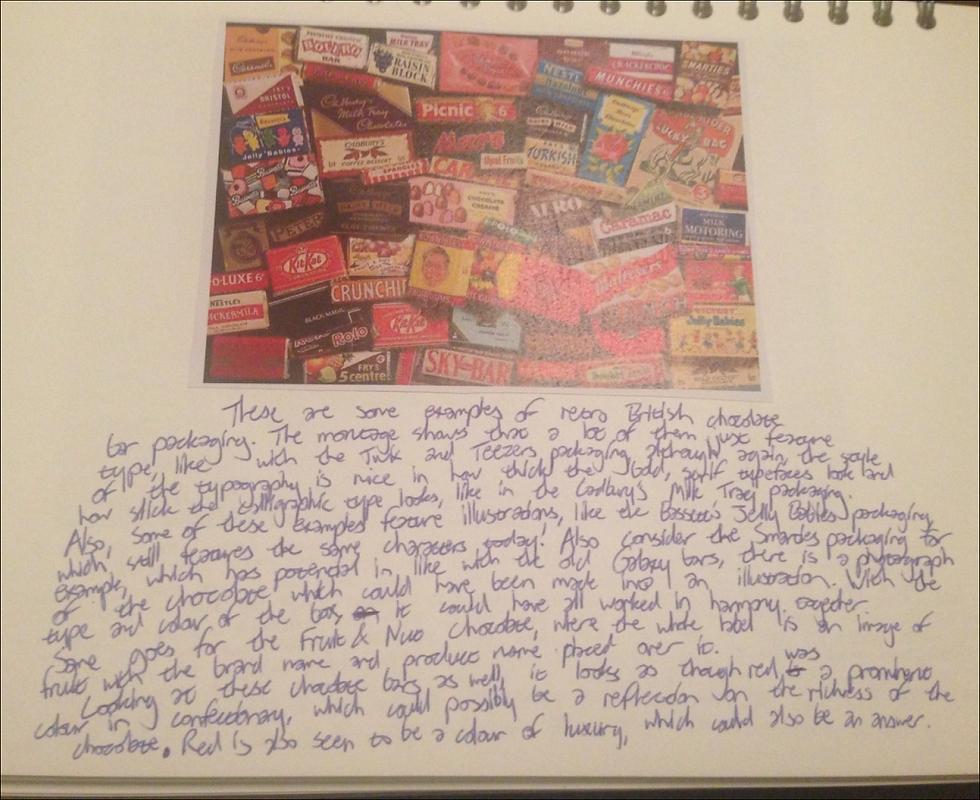 Caramels
BOLERO
BAR
MILK TRAY
RAISIN
BLOCK
NESTLÉ
CRACKERCHOC
MUNCHIES
SMARTIES
FRY'S
BRISTOL
Cadbury's
Milk Tray
Chocolates
Picnic 6
Mars
LUCKY
BAG
Bassett's
Jelly Babies
CADBURY'S
COFFEE DESSERT
SPANGLES
Opal Fruits
TURKISH
CHOCOLATE
CREAME
AERO
Caramac
MILK
MOTORING
PETER'S
POLO
KitKat
DAIRY MILK
Maltesers
O-LUXE 6
CRUNCHIE
NESTLE'S
BLACK MAGIC
Rolo
KitKat
Jelly Babies
FRY'S
5 centre
SKY-BAR
These are some examples of retro British chocolate
bar packaging. The montage shows that a lot of them just feature
type, like with the Twix and Teezers packaging, although again the style
of the typography is nice in how thick the bold, serif typefaces look and
how slick the calligraphic type looks, like in the Cadbury's Milk Tray packaging.
Also, some of these examples feature illustrations, like the Bassett's Jelly Babies packaging,
which still features the same characters today! Also consider the Smarties packaging for
example, which has potential in like with the old Galaxy bars, there is a photograph
of the chocolate which could have been made into an illustration. With the
type and colour of the box it could have all worked in harmony together.
Same goes for the Fruit & Nut chocolate, where the whole label is an image of
fruit with the brand name and product name placed over it.
Looking at these chocolate bars as well, it looks as though red was a prominent
colour in confectionary, which could possibly be a reflection on the richness of the
chocolate. Red is also seen to be a colour of luxury, which could also be an answer.